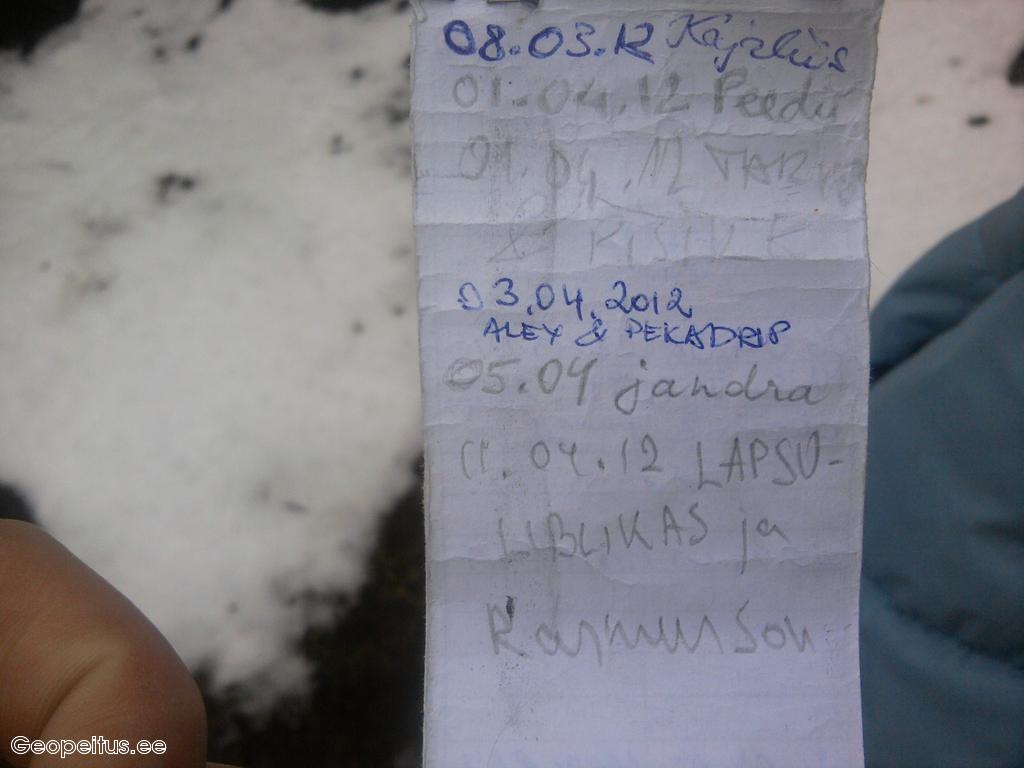 08.03.12
01.04.12 Peedu
01.04.12 TARVO
&
03.04.2012
ALEX & PEKADRIP
05.04 jandra
11.04.12 LAPSU-
LIBLIKAS ja
Rasmusson
Geopeitus.ee